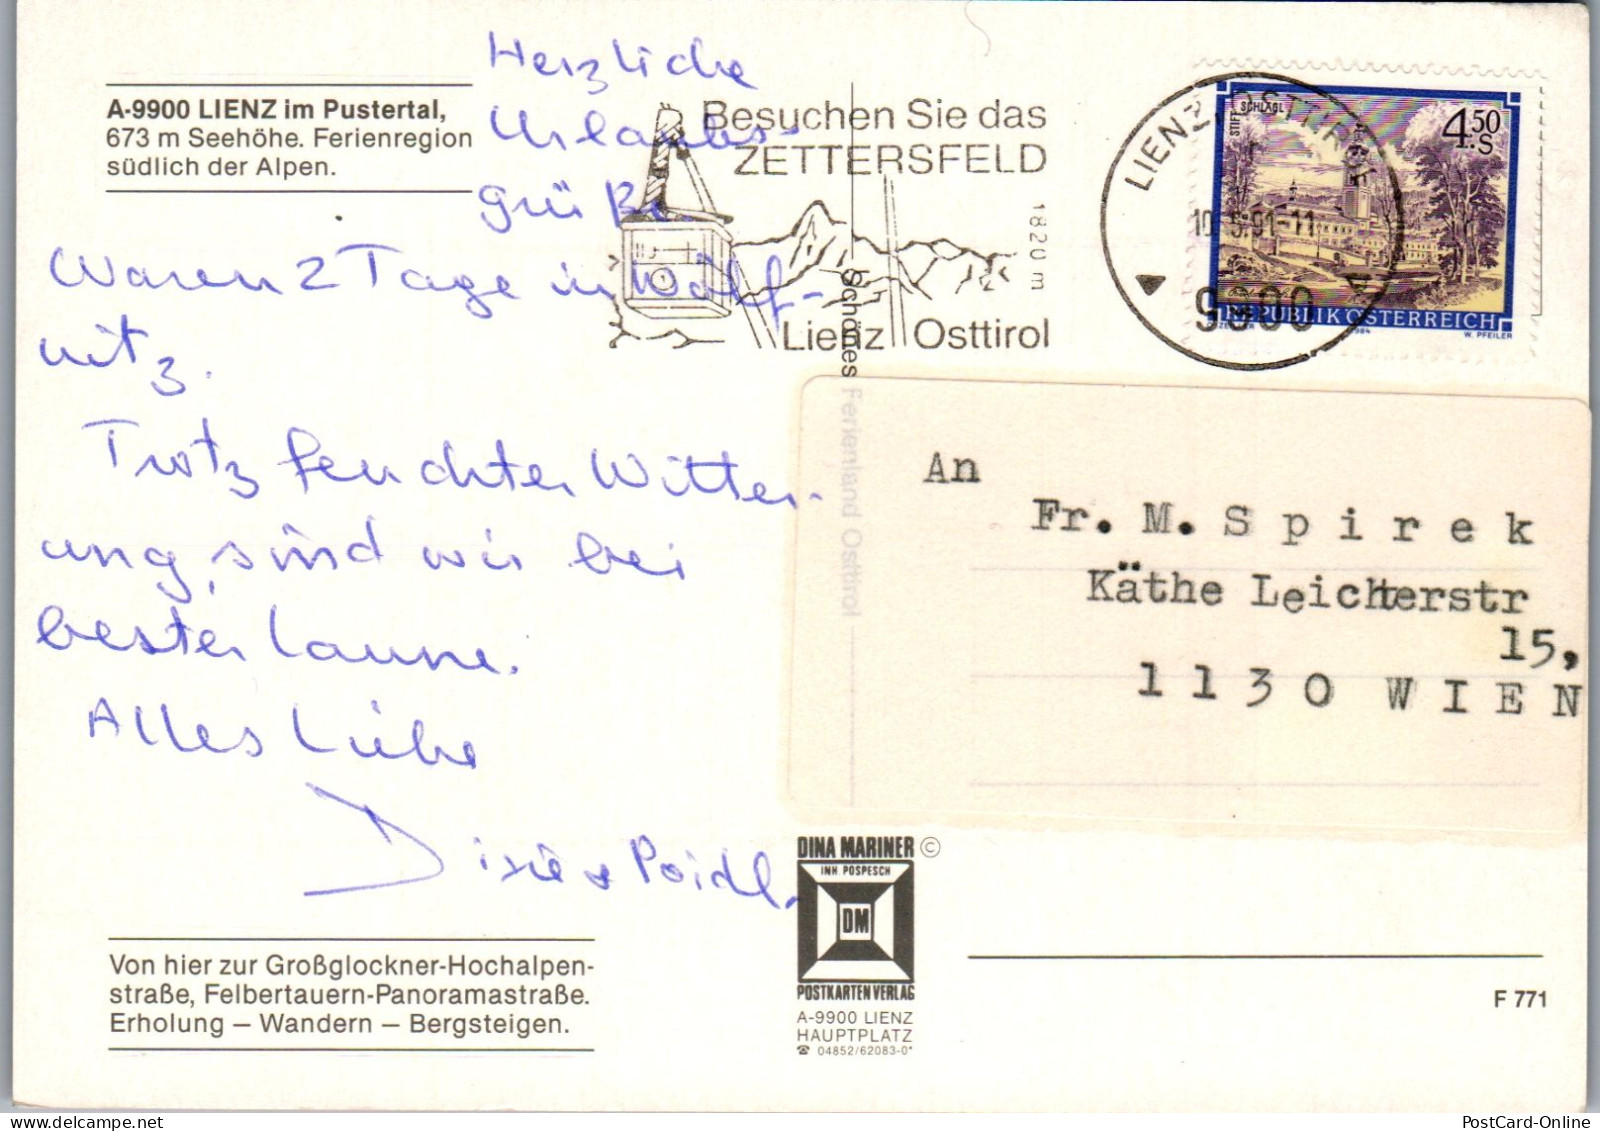 A-9900 LIENZ im Pustertal,
673 m Seehöhe. Ferienregion
südlich der Alpen.
Herzliche
Urlaubs-
grüße.
Waren 2 Tage in Wolf-
nitz.
Trotz feuchter Witter-
ung, sind wir bei
bester Laune.
Alles Liebe
Dixie + Poidl.
Besuchen Sie das
ZETTERSFELD
1820 m
Lienz Osttirol
LIENZ, OSTTIROL
9900
STIFT SCHLÄGL
4.50
S
REPUBLIK ÖSTERREICH
1984
W. PFEILER
Schönes Ferienland Osttirol
An
Fr. M. Spirek
Käthe Leichterstr
15,
1130 WIEN
Von hier zur Großglockner-Hochalpen-
straße, Felbertauern-Panoramastraße.
Erholung – Wandern – Bergsteigen.
DINA MARINER ©
INH. POSPESCH
DM
POSTKARTENVERLAG
A-9900 LIENZ
HAUPTPLATZ
☎ 04852/62083-0*
F 771
PostCard-Online